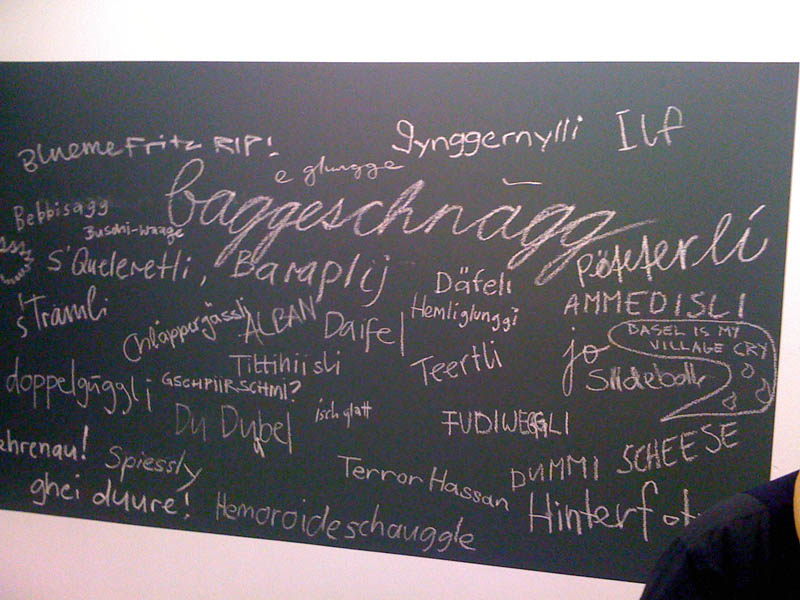 BluemeFritz RIP!
gynggernylli
Ilf
e glungge
baggeschnägg
Bebbisagg
Buschi-waage
S'Queleretli, Baraplij
Pöfferli
Däfeli
s'Trämli
Hemliglunggi
AMMEDISLI
Chläppergässli
ALBAN
Daifel
BASEL IS MY
VILLAGE CRY
jo
Tittihiisli
Teertli
Slideboll
doppelgüggli
GSCHPIIRSCHMI?
Du Dubel
isch glatt
FUDIWEGGLI
ehrenau!
Spiessly
DUMMI SCHEESE
Terror Hassan
ghei duure!
Hemoroideschauggle
Hinterfot